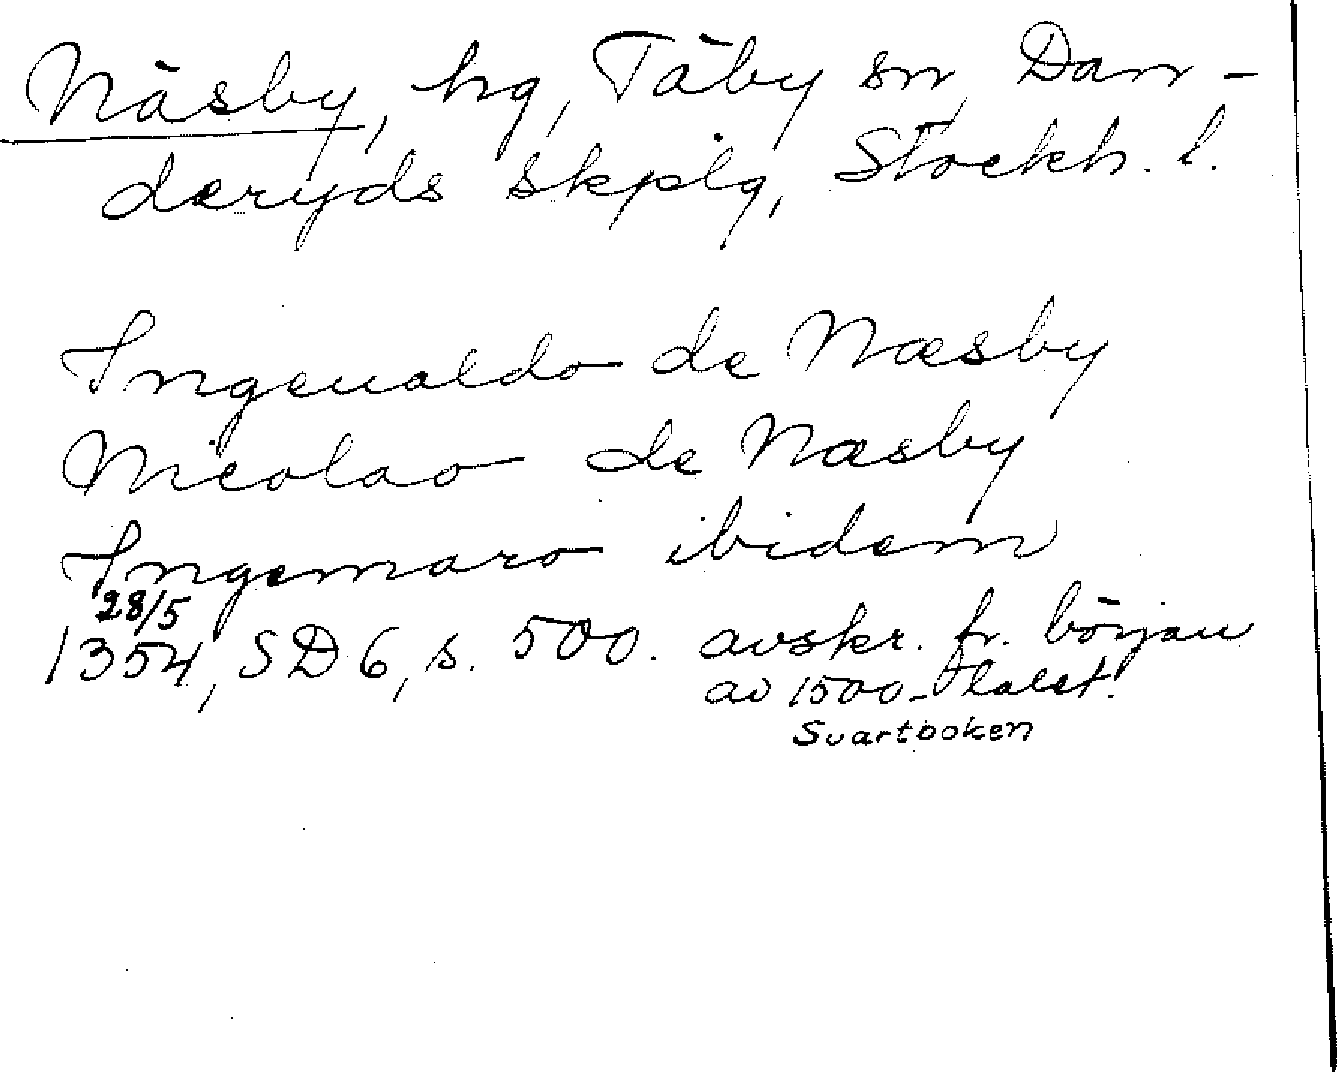 Näsby, hg, Täby sn, Dan-
deryds skplg, Stockh. l.
Ingeualdo de Næsby
Nicolao de Næsby
Ingemaro ibidem
28/5
1354, SD 6, s. 500. avskr. fr. början
av 1500-talet.
Svartboken